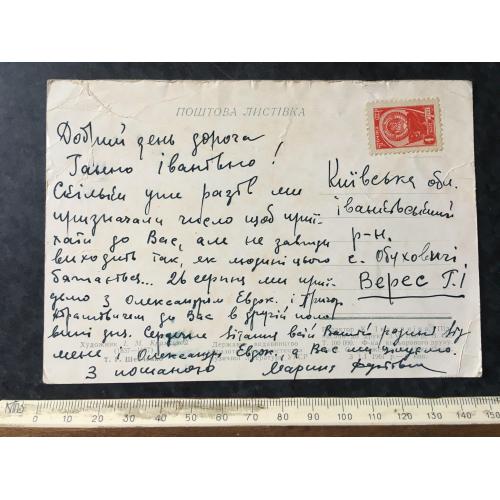 ПОШТОВА ЛИСТІВКА
Добрий день дорога
Ганно Іванівно!
Скільки уже разів ми
призначали число щоб приї-
хати до Вас, але не завжди
виходить так, як людині цього
бажається... 26 серпня ми приї-
демо з Олександром Евдок. і Григор.
до Вас в другій поло-
вині дня. Сердечне вітання всій Вашій родині від
мене Олександр Евдок., а Вас ми цілуємо.
З пошаною Марина
Київська обл.
Іванківський
р-н.
с. Обуховичі
Верес Г.І
Художник
Т. 100 000.
10 20 30 40 50 60 70 80 90 100 110 120 130 140 150